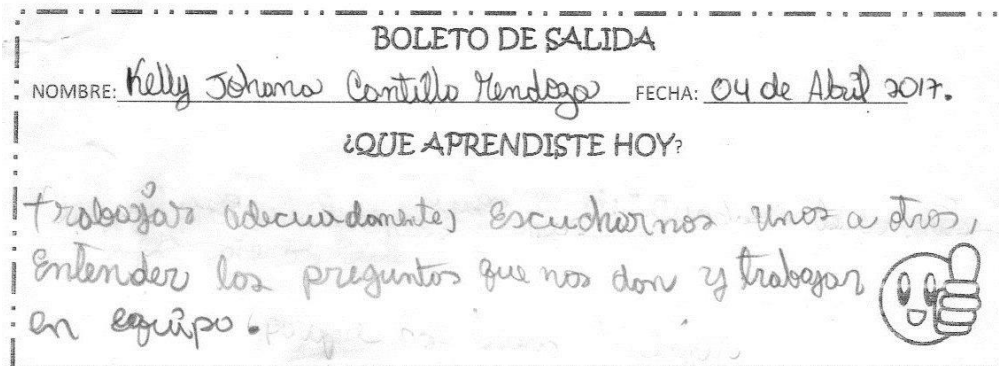 BOLETO DE SALIDA
NOMBRE: Kelly Johana Cantillo Mendoza FECHA: 04 de Abril 2017.
¿QUE APRENDISTE HOY?
trabajar adecuadamente, Escucharnos unos a otros,
Entender las preguntas que nos dan y trabajar
en equipo.